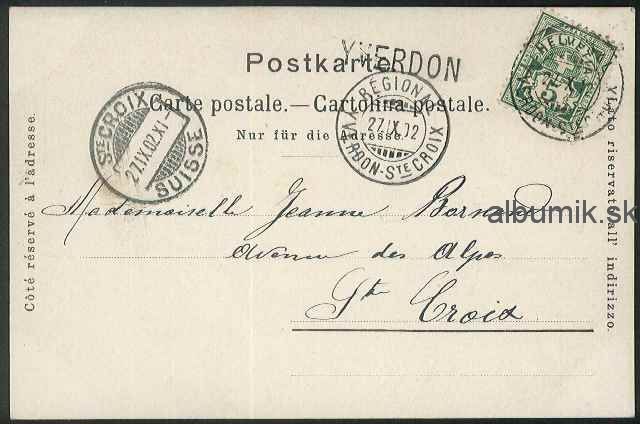 Postkarte.
YVERDON
Carte postale.—Cartolina postale.
Nur für die Adresse.
Côté réservé à l'adresse.
STE CROIX
27.IX.02.XI-
SUISSE
REGIONAL
27 IX 02
YVERDON-STE CROIX
HELVETIA
5
Mademoiselle Jeanne
albumik.sk
Avenue des Alpes
Ste Croix
riservato all' indirizzo.